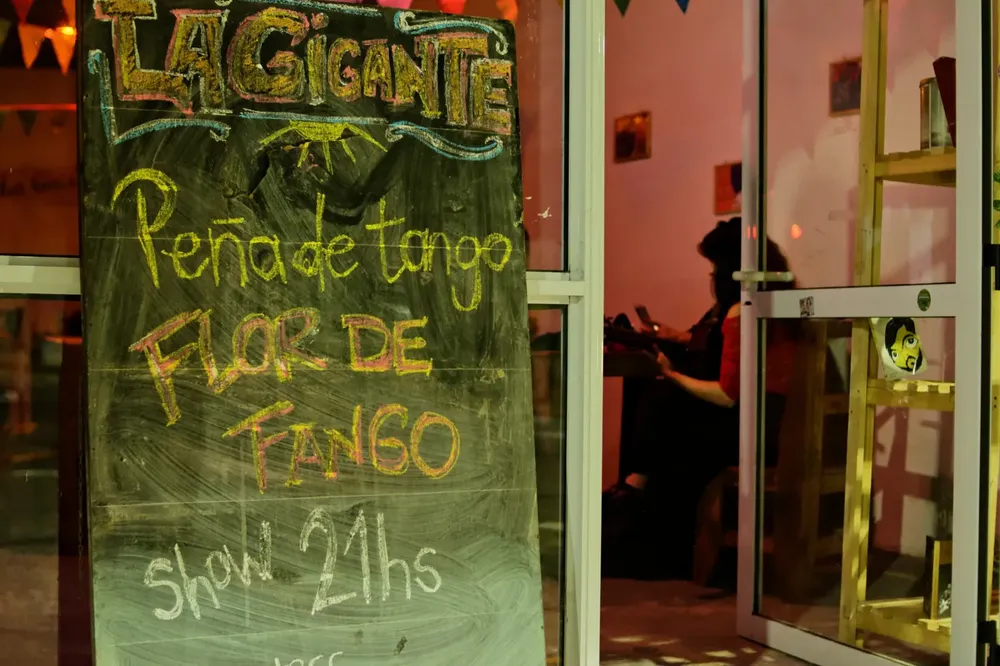 LA GIGANTE
Peña de tango
FLOR DE
FANGO
show 21hs